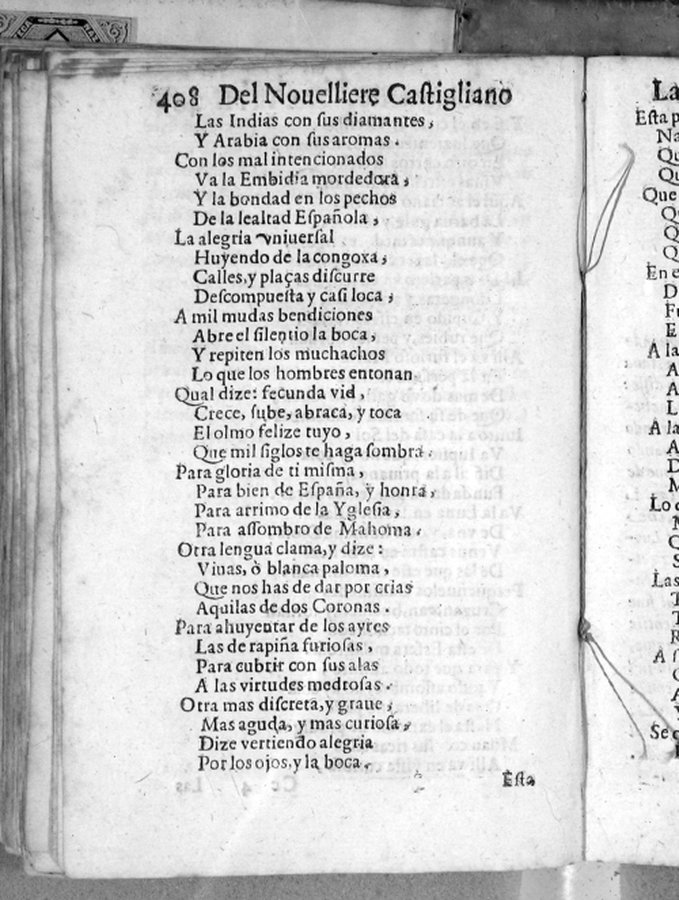 408 Del Nouelliere Castigliano
Las Indias con sus diamantes,
Y Arabia con sus aromas.
Con los mal intencionados
Va la Embidia mordedora,
Y la bondad en los pechos
De la lealtad Española,
La alegria vniuersal
Huyendo de la congoxa,
Calles, y plaças discurre
Descompuesta y casi loca,
A mil mudas bendiciones
Abre el silentio la boca,
Y repiten los muchachos
Lo que los hombres entonan
Qual dize: fecunda vid,
Crece, sube, abraca, y toca
El olmo felize tuyo,
Que mil siglos te haga sombra.
Para gloria de ti misma,
Para bien de España, y honra,
Para arrimo de la Yglesia,
Para assombro de Mahoma.
Otra lengua clama, y dize:
Viuas, ò blanca paloma,
Que nos has de dar por crias
Aquilas de dos Coronas.
Para ahuyentar de los ayres
Las de rapiña furiosas,
Para cubrir con sus alas
A las virtudes medrosas.
Otra mas discreta, y graue,
Mas aguda, y mas curiosa,
Dize vertiendo alegria
Por los ojos, y la boca.
Esta
La
Esta p
Na
Qu
Qu
Que
Qu
Q
Q
En e
D
Fu
E
A la
A
A
L
A la
A
D
M
Lo q
M
Q
S
Las
T
T
R
A s
C
A
Y
Se q